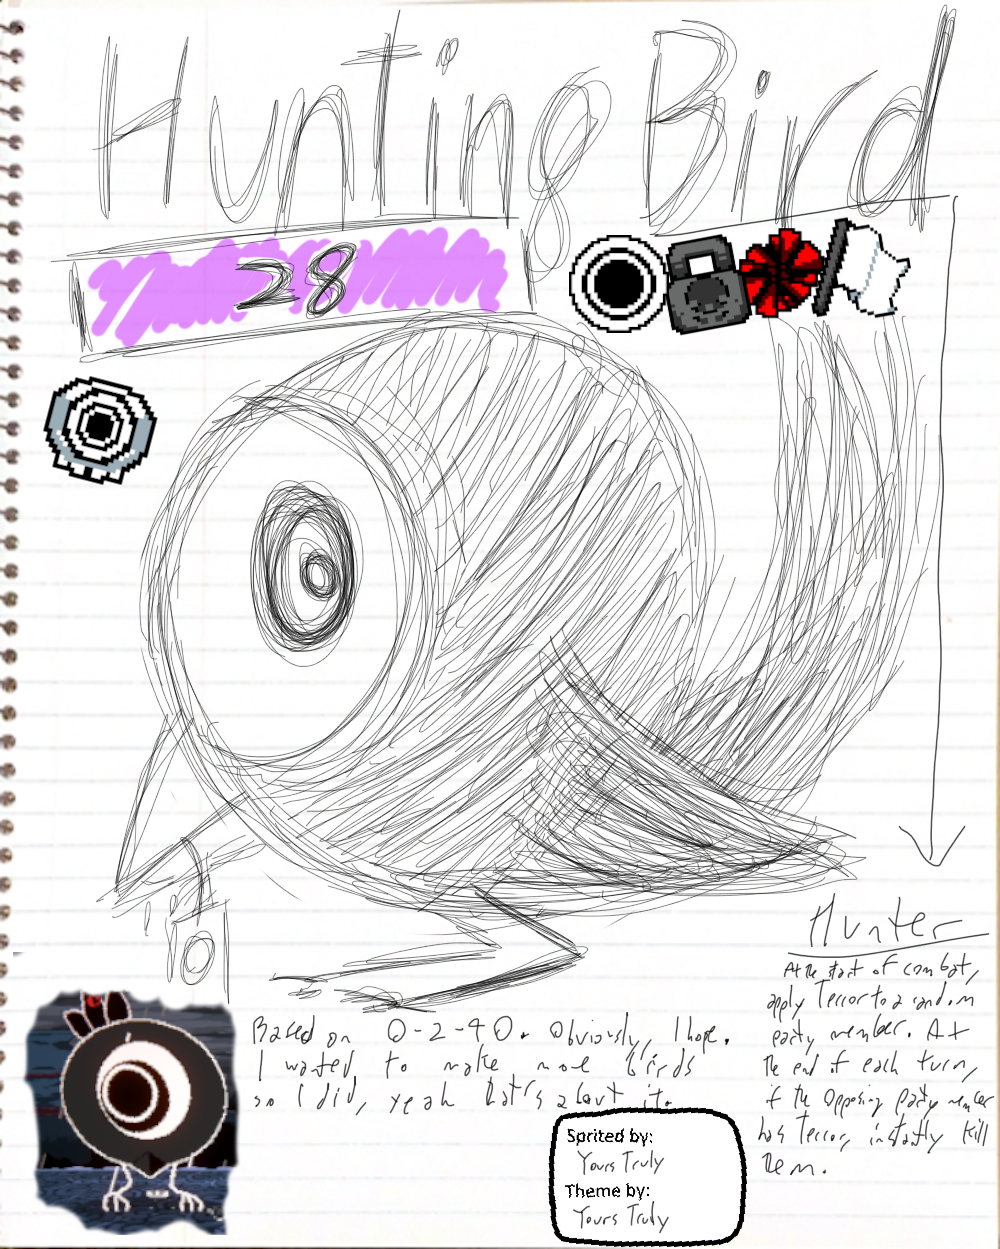 Hunting Bird
28
Hunter
At the start of combat,
apply Terror to a random
party member. At
the end of each turn,
if the opposing party member
has Terror, instantly kill
them.
Based on O-2-40. Obviously, I hope.
I wanted to make more birds
so I did, yeah that's about it.
Sprited by:
Yours Truly
Theme by:
Yours Truly